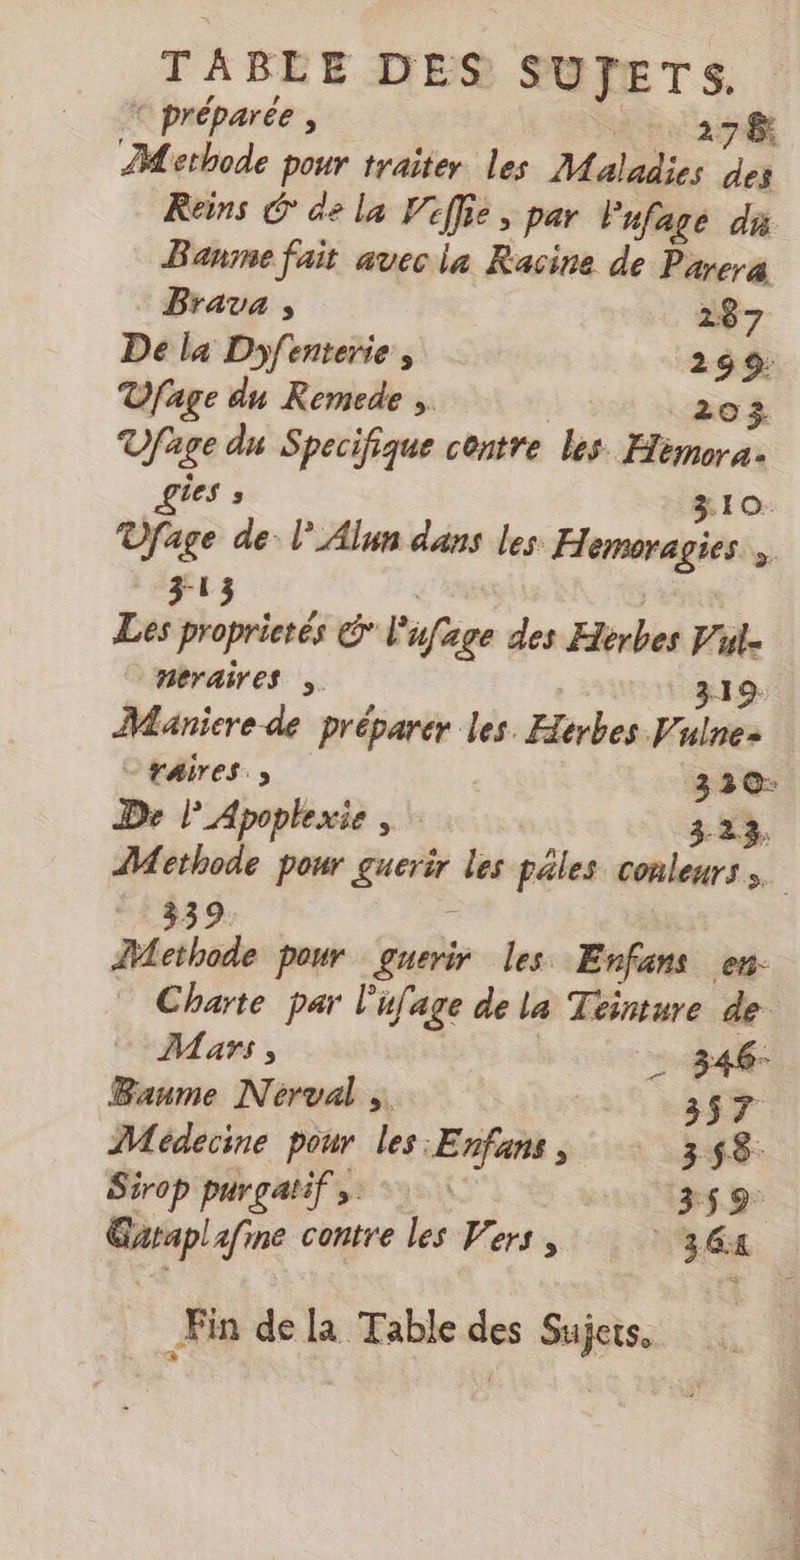 TABLE DES SUJETS.
préparée, 278
Methode pour traiter les Maladies des
Reins & de la Veſſie, par l'uſage du
Baume fait avec la Racine de Parera
Brava, 287
De la Dyſenterie, 299
Uſage du Remede, 203
Uſage du Specifique contre les Hemora-
gies, 310
Uſage de l'Alun dans les Hemoragies,
313
Les proprietés & l'uſage des Herbes Vul-
neraires, 319
Maniere de préparer les Herbes Vulne-
raires, 320
De l'Apoplexie, 323
Methode pour guerir les pâles couleurs,
339
Methode pour guerir les Enfans en
Charte par l'uſage de la Teinture de
Mars, 346
Baume Nerval, 357
Médecine pour les Enfans, 358
Sirop purgatif, 359
Cataplaſme contre les Vers, 361
Fin de la Table des Sujets.